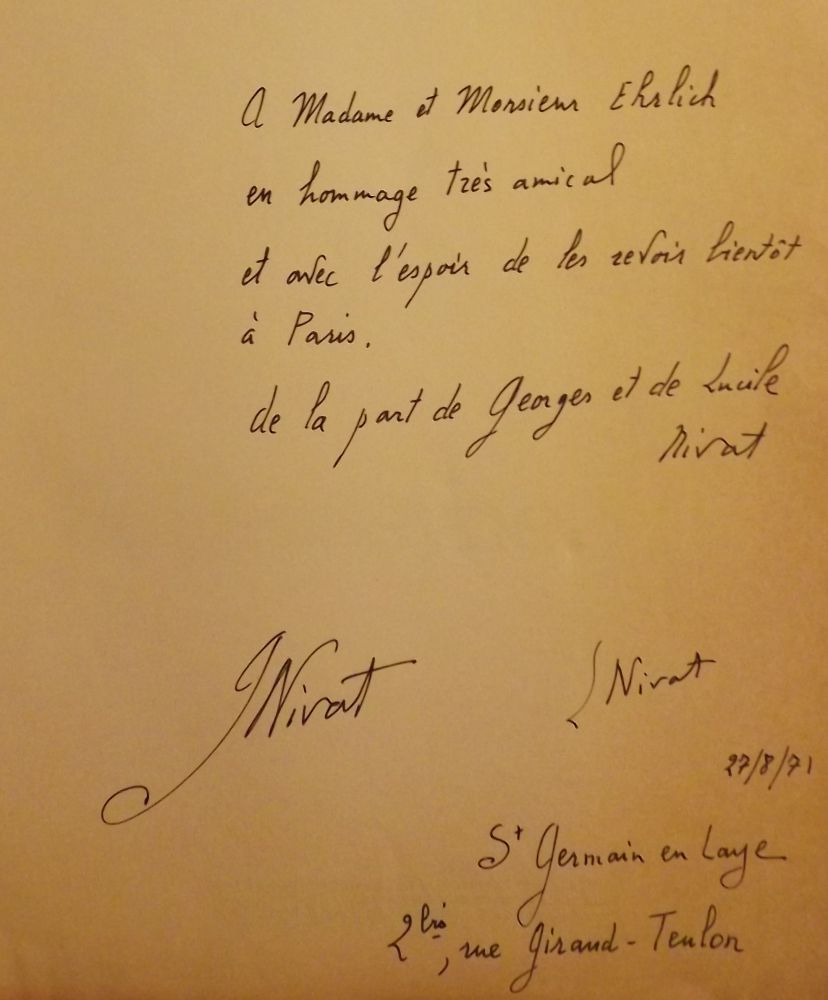 A Madame et Monsieur Ehrlich
en hommage très amical
et avec l'espoir de les revoir bientôt
à Paris.
de la part de Georges et de Lucile
Nivat
GNivat
LNivat
27/8/71
St Germain en Laye
2bis, rue Giraud-Teulon